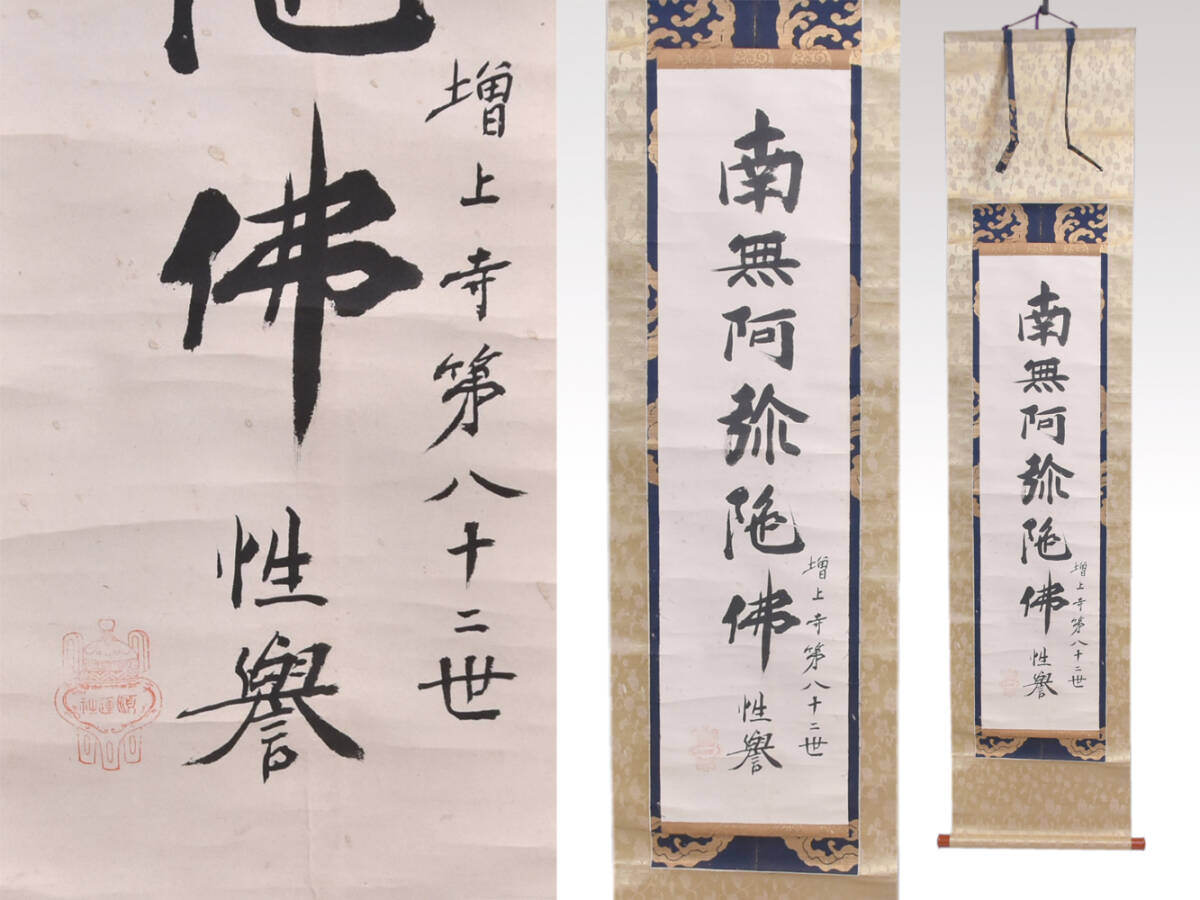 佛
増上寺第八十二世
性譽
南無阿弥陀佛
増上寺第八十二世
性譽
南無阿弥陀佛
増上寺第八十二世
性譽